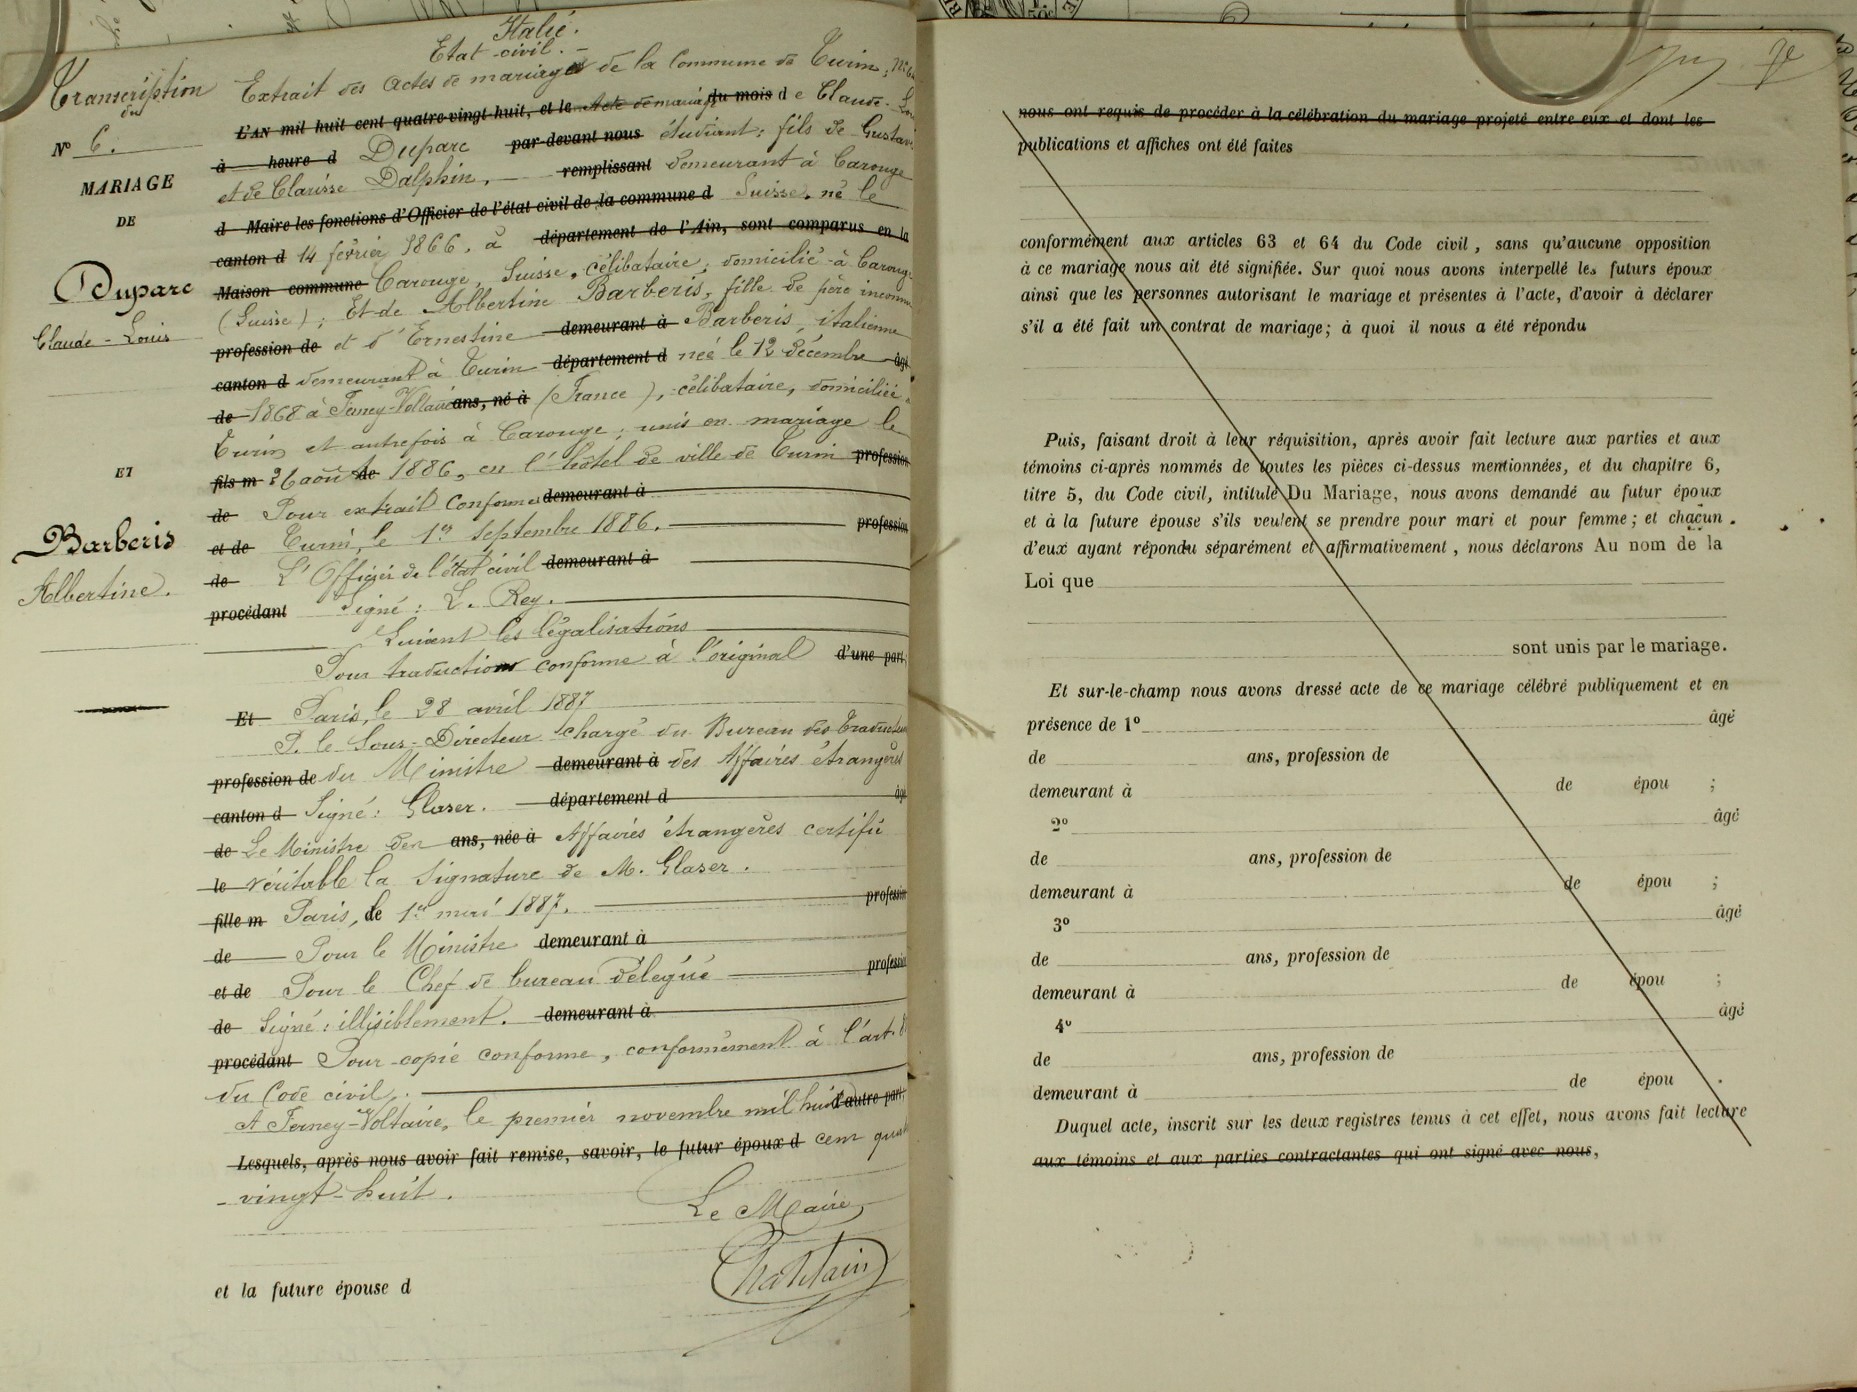 Italie.
Etat civil. -
Transcription
du
N° 6.
MARIAGE
DE
Duparc
Claude-Louis
ET
Barberis
Albertine.
Extrait des Actes de mariages de la Commune de Turin,
L'AN mil huit cent quatre-vingt huit, et le Acte de mariage du mois de Claude-
à heure d Duparc par-devant nous étudiant; fils de Gustave
et de Clarisse Dalphin, remplissant demeurant à Carouge
d Maire les fonctions d'Officier de l'état civil de la commune d Suisse, né le
canton d 14 février 1866, à département de l'Ain, sont comparus en la
Maison commune Carouge, Suisse, célibataire, domicilié à Carouge
(Suisse); Et de Albertine Barberis, fille de père inconnu
profession de et d'Ernestine demeurant à Barberis, italienne
canton d demeurant à Turin département d née le 12 décembre âgé
de 1868 à Ferney-Voltaire ans, né à (France), célibataire, domiciliée à
Turin et autrefois à Carouge; unis en mariage le
fils m 26 août de 1886, en l'hôtel de ville de Turin profession
de Pour extrait Conforme demeurant à
et de Turin, le 1er Septembre 1886. profession
de L'Officier de l'état civil demeurant à
procédant Signé: L. Rey.
Suivent les légalisations
Pour traduction conforme à l'original d'une part
Et Paris, le 28 avril 1887
P. le Sous-Directeur chargé du Bureau des Traducteurs
profession de du Ministre demeurant à des Affaires étrangères
canton d Signé: Glaser. département d âgé
de Le Ministre des ans, née à Affaires étrangères certifie
le véritable la Signature de M. Glaser.
fille m Paris, le 1er mai 1887. profession
de Pour le Ministre demeurant à
et de Pour le Chef de bureau délégué profession
de Signé: illisiblement. demeurant à
procédant Pour copie conforme, conformément à l'art.
du Code civil.
A Ferney-Voltaire, le premier novembre mil huit d'autre part.
Lesquels, après nous avoir fait remise, savoir, le futur époux d cent quatre
-vingt-huit.
Le Maire,
et la future épouse d
nous ont requis de procéder à la célébration du mariage projeté entre eux et dont les
publications et affiches ont été faites
conformément aux articles 63 et 64 du Code civil, sans qu'aucune opposition
à ce mariage nous ait été signifiée. Sur quoi nous avons interpellé les futurs époux
ainsi que les personnes autorisant le mariage et présentes à l'acte, d'avoir à déclarer
s'il a été fait un contrat de mariage; à quoi il nous a été répondu
Puis, faisant droit à leur réquisition, après avoir fait lecture aux parties et aux
témoins ci-après nommés de toutes les pièces ci-dessus mentionnées, et du chapitre 6,
titre 5, du Code civil, intitulé Du Mariage, nous avons demandé au futur époux
et à la future épouse s'ils veulent se prendre pour mari et pour femme; et chacun
d'eux ayant répondu séparément et affirmativement, nous déclarons Au nom de la
Loi que
sont unis par le mariage.
Et sur-le-champ nous avons dressé acte de ce mariage célébré publiquement et en
présence de 1° âgé
de ans, profession de
demeurant à de épou ;
2° âgé
de ans, profession de
demeurant à de épou ;
3° âgé
de ans, profession de
demeurant à de épou ;
4° âgé
de ans, profession de
demeurant à de épou .
Duquel acte, inscrit sur les deux registres tenus à cet effet, nous avons fait lecture
aux témoins et aux parties contractantes qui ont signé avec nous,